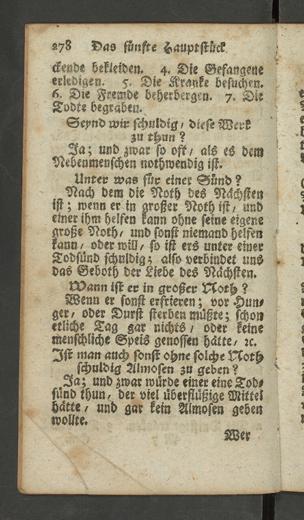 278 Das fünfte Hauptstück
ckende bekleiden. 4. Die Gefangene
erledigen. 5. Die Kranke besuchen.
6. Die Fremde beherbergen. 7. Die
Todte begraben.
Seynd wir schuldig, diese Werk
zu thun?
Ja; und zwar so oft, als es dem
Nebenmenschen nothwendig ist.
Unter was für einer Sünd?
Nach dem die Noth des Nächsten
ist; wenn er in großer Noth ist, und
einer ihm helfen kann ohne seine eigene
große Noth, und sonst niemand helfen
kann, oder will, so ist ers unter einer
Todsünd schuldig; also verbindet uns
das Geboth der Liebe des Nächsten.
Wann ist er in großer Noth?
Wenn er sonst erfrieren; vor Hun-
ger, oder Durst sterben müßte; schon
etliche Tag gar nichts, oder keine
menschliche Speis genossen hätte, ꝛc.
Ist man auch sonst ohne solche Noth
schuldig Almosen zu geben?
Ja; und zwar würde einer eine Tod-
sünd thun, der viel überflüßige Mittel
hätte, und gar kein Almosen geben
wollte.
Wer